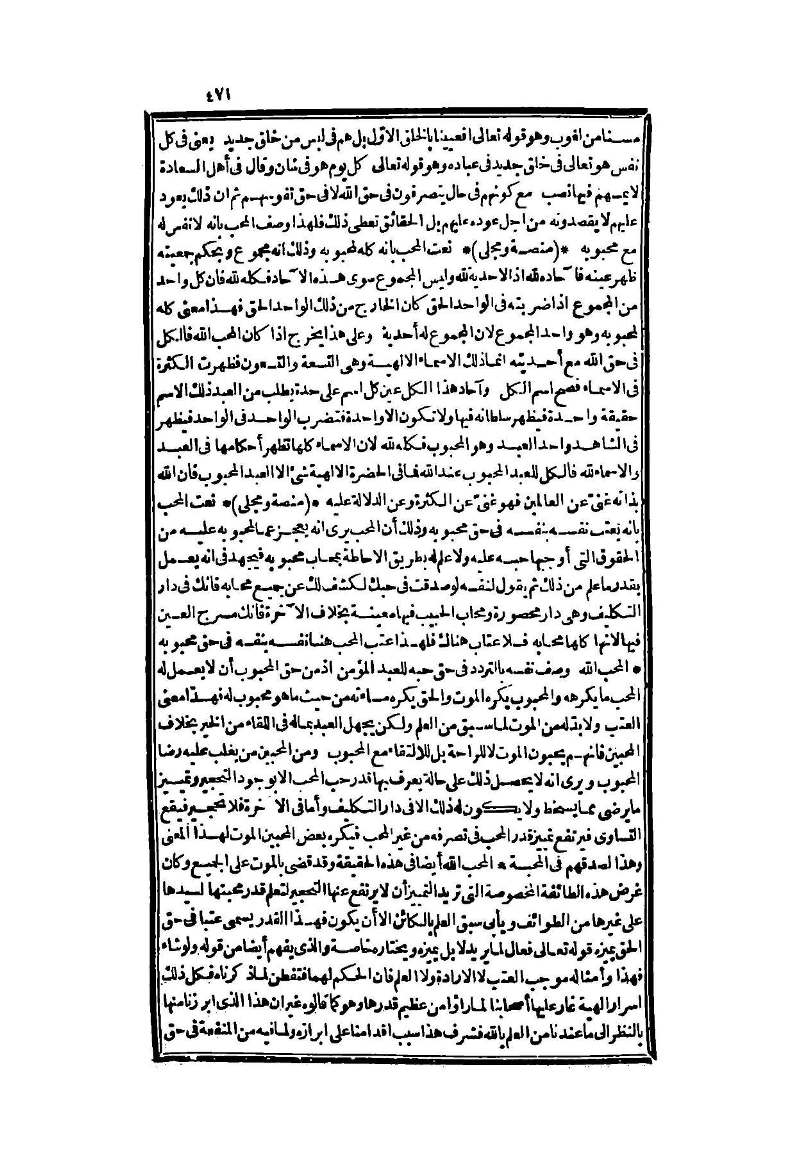 ٤٧١
مسنا من لغوب وهو قوله تعالى افعيينا بالخلق الاول بل هم فى لبس من خلق جديد يعنى فى كل
نفس هو تعالى فى خلق جديد فى عباده وهو قوله تعالى كل يوم هو فى شان وقال فى أهل السعادة
لا يمسهم فيها نصب مع كونهم فى حال يتصرفون فى حق الله لا فى حق نفوسهم ثم ان ذلك يعود
عليهم لا يقصدونه من اجل عوده عليهم بل الحقائق تعطى ذلك فلهذا وصف المحب بانه لا نفس له
مع محبوبه *(منصة ومجلى)* نعت المحب بانه كله لمحبوبه وذلك انه مجموع وبحكم جمعيته
ظهر عينه فا ۤحاده لله اذ الاحدية لله وليس المجموع سوى هذه الا ۤحاد فكله لله فان كل واحد
من المجموع اذا ضربته فى الواحد الحق كان الخارج من ذلك الواحد الحق فهذا معنى كله
لمحبوبه وهو واحد المجموع لان المجموع له أحدية وعلى هذا يخرج اذا كان المحب الله فالكل
فى حق الله مع أحديته انما ذلك الاسماء الالهية وهى التسعة والتسعون فظهرت الكثرة
فى الاسماء فصح اسم الكل وآحاد هذا الكل عين كل اسم على حدة يطلب من العبد ذلك الاسم
حقيقة واحدة فيظهر سلطانه فيها ولا تكون الا واحدة فتضرب الواحد فى الواحد فيظهر
فى الشاهد واحد العبد وهو المحبوب فكله لله لان الاسماء كلها تظهر أحكامها فى العبد
والاسماء لله فالكل للعبد المحبوب عند الله فما فى الحضرة الالهية شئ الا العبد المحبوب فان الله
بذاته غنى عن العالمين فهو غنى عن الكثرة وعن الدلالة عليه *(منصة ومجلى)* نعت المحب
بانه يعتب نفسه بنفسه فى حق محبوبه وذلك أن المحب يرى انه يعجز عما لمحبوبه عليه من
الحقوق التى أوجبها حبه عليه ولا علم له بطريق الاحاطة بمحاب محبوبه فيجهد فى انه يعمل
بقدر ما علم من ذلك ثم يقول لنفسه لو صدقت فى حبك لكشف لك عن جميع محابه فانك فى دار
التكليف وهى دار محصورة ومحاب الحبيب فيها معينة بخلاف الا ۤخرة فانك مسرح العين
فيها لانها كلها محابه فلا عتاب هناك فلهذا عتب المحب هنا نفسه بنفسه فى حق محبوبه
* المحب الله وصف نفسه بالتردد فى حق حبه للعبد المؤمن اذ من حق المحبوب أن لا يعمل له
المحب ما يكرهه والمحبوب يكره الموت والحق يكره مساءته من حيث ما هو محبوب له فهذا معنى
العتب ولا بد له من الموت لما سبق من العلم ولكن يجهل العبد بما له فى اللقاء من الخير بخلاف
المحبين فانهم يحبون الموت لا للراحة بل للالتقاء مع المحبوب ومن المحبين من يغلب عليه رضا
المحبوب ويرى انه لا يحصل ذلك على حالة يعرف بها قدر حب المحب الا بوجود التحجير وتمييز
ما يرضى مما يسخط ولا يكون له ذلك الا فى دار التكليف وأما فى الا ۤخرة فلا تحجير فيقع
التساوى فيرتفع تمييز قدر المحب فى تصرفه من غير المحب فيكره بعض المحبين الموت لهذا المعنى
وهذا لصدقهم فى المحبة * المحب الله أيضا فى هذه الحقيقة وقد قضى بالموت على الجميع وكان
غرض هذه الطائفة المخصوصة التى تريد التمييز أن لا يرتفع عنها التحجير لتعلم قدر محبتها لسيدها
على غيرها من الطوائف ويأبى سبق العلم بالكائن الا أن يكون فهذا القدر يسمى عتبا فى حق
الحق يميزه قوله تعالى فعال لما يريد لا بل يميزه ويختار مناصة والذى يفهم أيضا من قوله ولو شاء
فهذا وأمثاله موجب العتب لا الارادة ولا العلم فان الحكم لهما فتفطن لما ذكرناه فكل ذلك
اسرار الهية غار عليها أصحابنا لما رأوا من عظيم قدرها وهو كما قالوه غير ان هذا الذى ابرزنا منها
بالنظر الى ما عندنا من العلم بالله فشرف هذا سبب اقدامنا على ابرازه ولما فيه من المنفعة فى حق